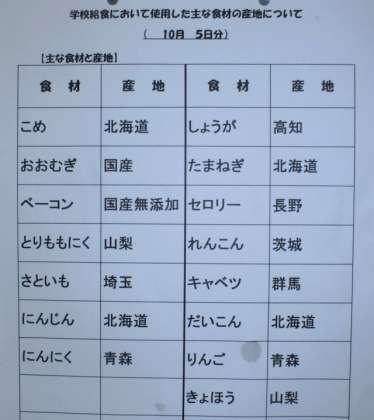 学校給食において使用した主な食材の産地について
( 10月 5日分)
【主な食材と産地】
食 材 産 地 食 材 産 地
こめ 北海道 しょうが 高知
おおむぎ 国産 たまねぎ 北海道
ベーコン 国産無添加 セロリー 長野
とりももにく 山梨 れんこん 茨城
さといも 埼玉 キャベツ 群馬
にんじん 北海道 だいこん 北海道
にんにく 青森 りんご 青森
きょほう 山梨